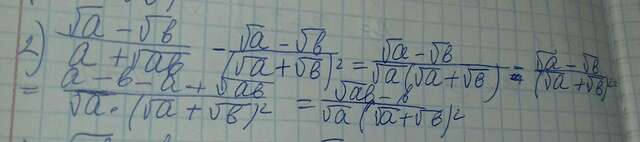 2) (√a − √b)/(a + √ab) − (√a − √b)/(√a + √b)² = (√a − √b)/(√a(√a + √b)) − (√a − √b)/(√a + √b)² =
= (a − b − a + √ab)/(√a · (√a + √b)²) = (√ab − b)/(√a(√a + √b)²)